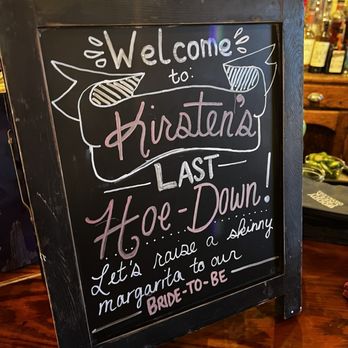 Welcome
to:
Kirsten's
LAST
Hoe-Down!
Let's raise a skinny
margarita to our
BRIDE-TO-BE